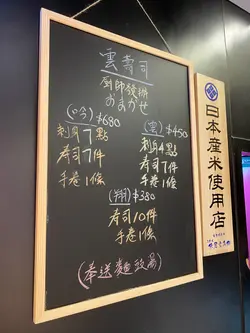 雲壽司
厨師發辦
おまかせ
(吟) $680
刺身7點
寿司7件
手卷1條
(雲) $450
刺身4點
寿司7件
手卷1條
(翔) $380
寿司10件
手卷1條
(奉送麵豉湯)
日本産米使用店